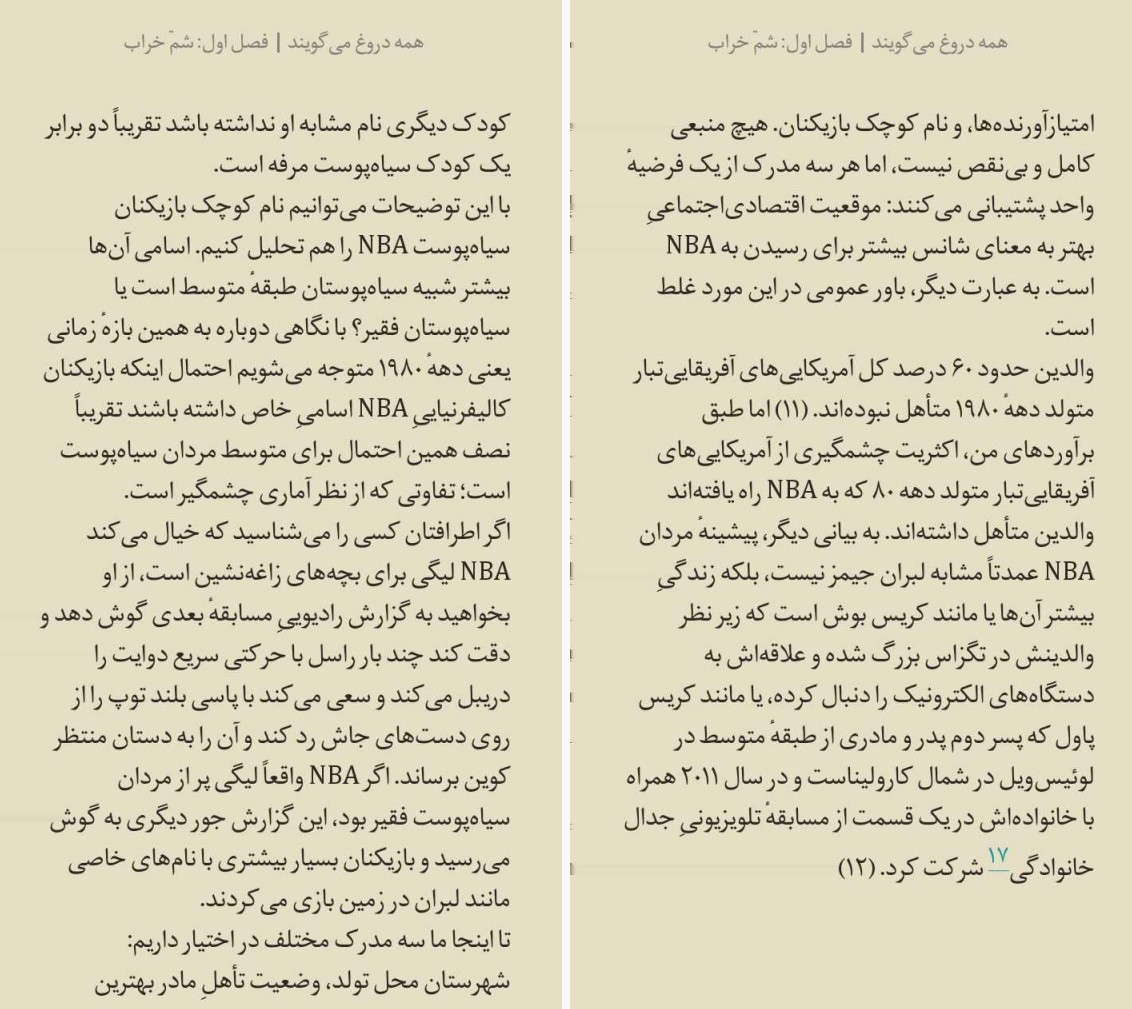 همه دروغ می‌گویند | فصل اول: شمّ خراب
کودک دیگری نام مشابه او نداشته باشد تقریباً دو برابر
یک کودک سیاه‌پوست مرفه است.
با این توضیحات می‌توانیم نام کوچک بازیکنان
سیاه‌پوست NBA را هم تحلیل کنیم. اسامی آن‌ها
بیشتر شبیه سیاه‌پوستان طبقهٔ متوسط است یا
سیاه‌پوستان فقیر؟ با نگاهی دوباره به همین بازهٔ زمانی
یعنی دههٔ ۱۹۸۰ متوجه می‌شویم احتمال اینکه بازیکنان
کالیفرنیاییِ NBA اسامیِ خاص داشته باشند تقریباً
نصف همین احتمال برای متوسط مردان سیاه‌پوست
است؛ تفاوتی که از نظر آماری چشمگیر است.
اگر اطرافتان کسی را می‌شناسید که خیال می‌کند
NBA لیگی برای بچه‌های زاغه‌نشین است، از او
بخواهید به گزارش رادیوییِ مسابقهٔ بعدی گوش دهد و
دقت کند چند بار راسل با حرکتی سریع دوایت را
دریبل می‌کند و سعی می‌کند با پاسی بلند توپ را از
روی دست‌های جاش رد کند و آن را به دستان منتظر
کوین برساند. اگر NBA واقعاً لیگی پر از مردان
سیاه‌پوست فقیر بود، این گزارش جور دیگری به گوش
می‌رسید و بازیکنان بسیار بیشتری با نام‌های خاصی
مانند لبران در زمین بازی می‌کردند.
تا اینجا ما سه مدرک مختلف در اختیار داریم:
شهرستان محل تولد، وضعیت تأهلِ مادر بهترین
همه دروغ می‌گویند | فصل اول: شمّ خراب
امتیازآورنده‌ها، و نام کوچک بازیکنان. هیچ منبعی
کامل و بی‌نقص نیست، اما هر سه مدرک از یک فرضیهٔ
واحد پشتیبانی می‌کنند: موقعیت اقتصادی‌اجتماعیِ
بهتر به معنای شانس بیشتر برای رسیدن به NBA
است. به عبارت دیگر، باور عمومی در این مورد غلط
است.
والدین حدود ۶۰ درصد کل آمریکایی‌های آفریقایی‌تبار
متولد دههٔ ۱۹۸۰ متأهل نبوده‌اند. (۱۱) اما طبق
برآوردهای من، اکثریت چشمگیری از آمریکایی‌های
آفریقایی‌تبار متولد دهه ۸۰ که به NBA راه یافته‌اند
والدین متأهل داشته‌اند. به بیانی دیگر، پیشینهٔ مردان
NBA عمدتاً مشابه لبران جیمز نیست، بلکه زندگیِ
بیشتر آن‌ها یا مانند کریس بوش است که زیر نظر
والدینش در تگزاس بزرگ شده و علاقه‌اش به
دستگاه‌های الکترونیک را دنبال کرده، یا مانند کریس
پاول که پسر دوم پدر و مادری از طبقهٔ متوسط در
لوئیس‌ویل در شمال کارولیناست و در سال ۲۰۱۱ همراه
با خانواده‌اش در یک قسمت از مسابقهٔ تلویزیونیِ جدال
خانوادگی۱۷ شرکت کرد. (۱۲)